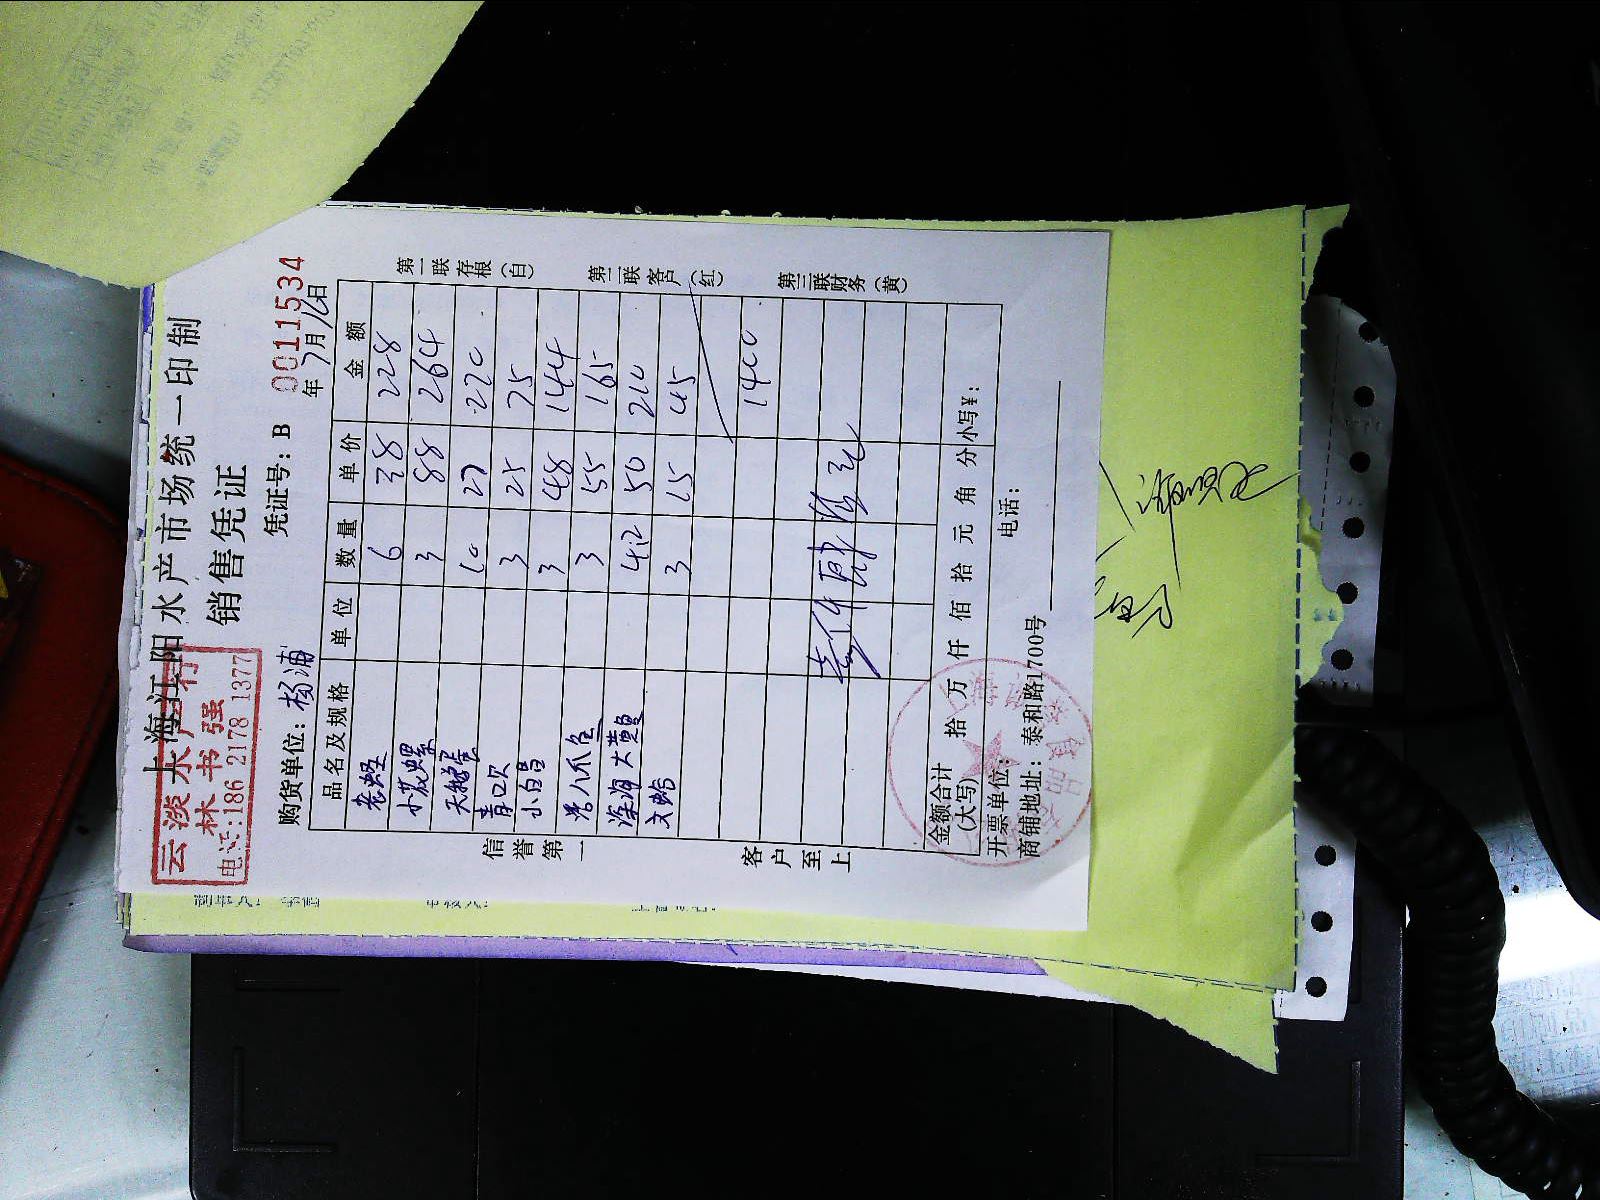 上海江阳水产市场统一印制
销售凭证
云淡水产行
林书强
电话:186 2178 1377
凭证号:B 0011534
购货单位:杨浦 年7月16日
品名及规格 单位 数量 单价 金额
老蛏 6 38 228
小花螺 3 88 264
天鹅蛋 10 27 270
青口 3 25 75
小白 3 48 144
八爪鱼 3 55 165
深海大黄鱼 4.2 50 210
文蛤 3 15 45
1400
金额合计
(大写) 拾 万 仟 佰 拾 元 角 分 小写¥:
开票单位: 电话:
商铺地址:泰和路1700号
信誉第一
客户至上
第一联存根(白)
第二联客户(红)
第三联财务(黄)